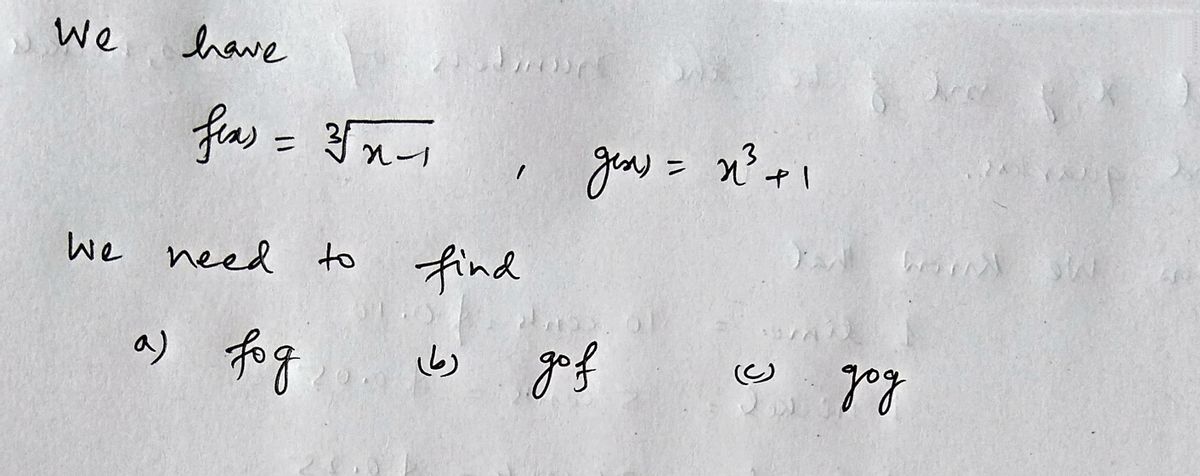 We have
f(x) = ∛(x-1) , g(x) = x³ + 1
We need to find
a) fog (b) gof (c) gog